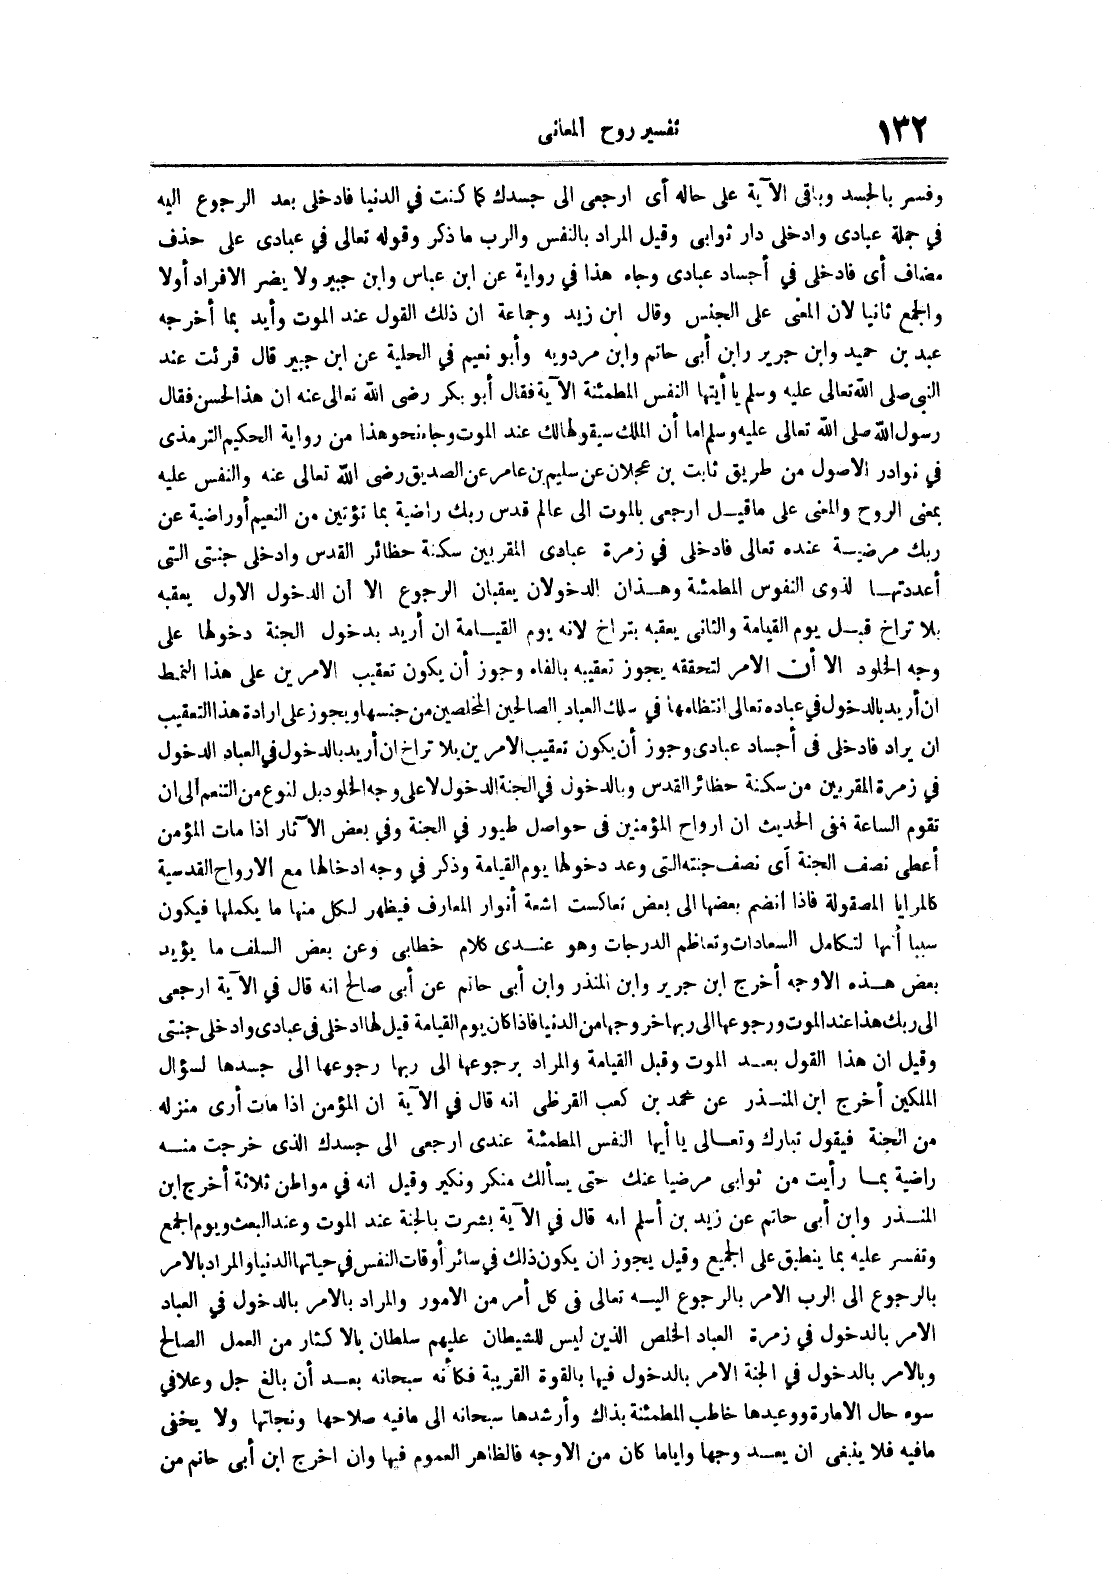 ١٣٢
تفسير روح المعانى
وفسر بالجسد وباقى الآية على حاله أى ارجعى الى جسدك كما كنت في الدنيا فادخلى بعد الرجوع اليه
في جملة عبادى وادخلى دار ثوابى وقيل المراد بالنفس والرب ما ذكر وقوله تعالى في عبادى على حذف
مضاف أى فادخلى في أجساد عبادى وجاء هذا في رواية عن ابن عباس وابن جبير ولا يضر الافراد أولا
والجمع ثانيا لان المعنى على الجنس وقال ابن زيد وجماعة ان ذلك القول عند الموت وأيد بما أخرجه
عبد بن حميد وابن جرير وابن أبى حاتم وابن مردويه وأبو نعيم في الحلية عن ابن جبير قال قرئت عند
النبى صلى الله تعالى عليه وسلم يا أيتها النفس المطمئنة الآية فقال أبو بكر رضى الله تعالى عنه ان هذا لحسن فقال
رسول الله صلى الله تعالى عليه وسلم اما أن الملك سيقولها لك عند الموت وجاء نحو هذا من رواية الحكيم الترمذى
في نوادر الاصول من طريق ثابت بن عجلان عن سليم بن عامر عن الصديق رضى الله تعالى عنه والنفس عليه
بمعنى الروح والمعنى على ماقيل ارجعى بالموت الى عالم قدس ربك راضية بما تؤتين من النعيم أو راضية عن
ربك مرضية عنده تعالى فادخلى في زمرة عبادى المقربين سكنة حظائر القدس وادخلى جنتى التى
أعددتها لذوى النفوس المطمئنة وهذان الدخولان يعقبان الرجوع الا أن الدخول الاول يعقبه
بلا تراخ قبل يوم القيامة والثانى يعقبه بتراخ لانه يوم القيامة ان أريد بدخول الجنة دخولها على
وجه الخلود الا أن الامر لتحققه يجوز تعقيبه بالفاء وجوز أن يكون تعقيب الامرين على هذا النمط
ان أريد بالدخول في عباده تعالى انتظامها في سلك العباد الصالحين المخلصين من جنسها ويجوز على ارادة هذا التعقيب
ان يراد فادخلى فى أجساد عبادى وجوز أن يكون تعقيب الامرين بلا تراخ ان أريد بالدخول في العباد الدخول
في زمرة المقربين من سكنة حظائر القدس وبالدخول في الجنة الدخول لا على وجه الخلود بل لنوع من التنعم الى ان
تقوم الساعة ففى الحديث ان ارواح المؤمنين فى حواصل طيور في الجنة وفي بعض الآثار اذا مات المؤمن
أعطى نصف الجنة أى نصف جنته التى وعد دخولها يوم القيامة وذكر في وجه ادخالها مع الارواح القدسية
كالمرايا المصقولة فاذا انضم بعضها الى بعض تعاكست اشعة أنوار المعارف فيظهر لكل منها ما يكملها فيكون
سببا أنها لتكامل السعادات وتعاظم الدرجات وهو عندى كلام خطابى وعن بعض السلف ما يؤيد
بعض هذه الاوجه أخرج ابن جرير وابن المنذر وابن أبى حاتم عن أبى صالح انه قال في الآية ارجعى
الى ربك هذا عند الموت ورجوعها الى ربها خروجها من الدنيا فاذا كان يوم القيامة قيل لها ادخلى فى عبادى وادخلى جنتى
وقيل ان هذا القول بعد الموت وقبل القيامة والمراد برجوعها الى ربها رجوعها الى جسدها لسؤال
الملكين أخرج ابن المنذر عن محمد بن كعب القرظى انه قال في الآية ان المؤمن اذا مات أرى منزله
من الجنة فيقول تبارك وتعالى يا أيها النفس المطمئنة عندى ارجعى الى جسدك الذى خرجت منه
راضية بما رأيت من ثوابى مرضيا عنك حتى يسألك منكر ونكير وقيل انه في مواطن ثلاثة أخرج ابن
المنذر وابن أبى حاتم عن زيد بن أسلم انه قال في الآية بشرت بالجنة عند الموت وعند البعث ويوم الجمع
وتفسر عليه بما ينطبق على الجميع وقيل يجوز ان يكون ذلك في سائر أوقات النفس في حياتها الدنيا والمراد بالامر
بالرجوع الى الرب الامر بالرجوع اليه تعالى فى كل أمر من الامور والمراد بالامر بالدخول في العباد
الامر بالدخول في زمرة العباد الخلص الذين ليس للشيطان عليهم سلطان بالاكثار من العمل الصالح
وبالامر بالدخول في الجنة الامر بالدخول فيها بالقوة القريبة فكأنه سبحانه بعد أن بالغ جل وعلا في
سوء حال الامارة ووعيدها خاطب المطمئنة بذاك وأرشدها سبحانه الى مافيه صلاحها ونجاتها ولا يخفى
مافيه فلا ينبغى ان يعد وجها واياما كان من الاوجه فالظاهر العموم فيها وان اخرج ابن أبى حاتم من